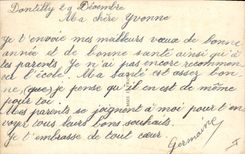 Dontilly 29 Décembre
Ma chère Yvonne
Je t'envoie mes meilleurs vœux de bonne
année et de bonne santé ainsi qu'à
tes parents. Je n'ai pas encore recommencé
l'école. Ma santé est assez bon-
ne, (que) je pense qu'il en est de même
pour toi.
Mes parents se joignent à moi pour t'en
voyer tous leurs bons souhaits.
Je t'embrasse de tout cœur.
Germaine